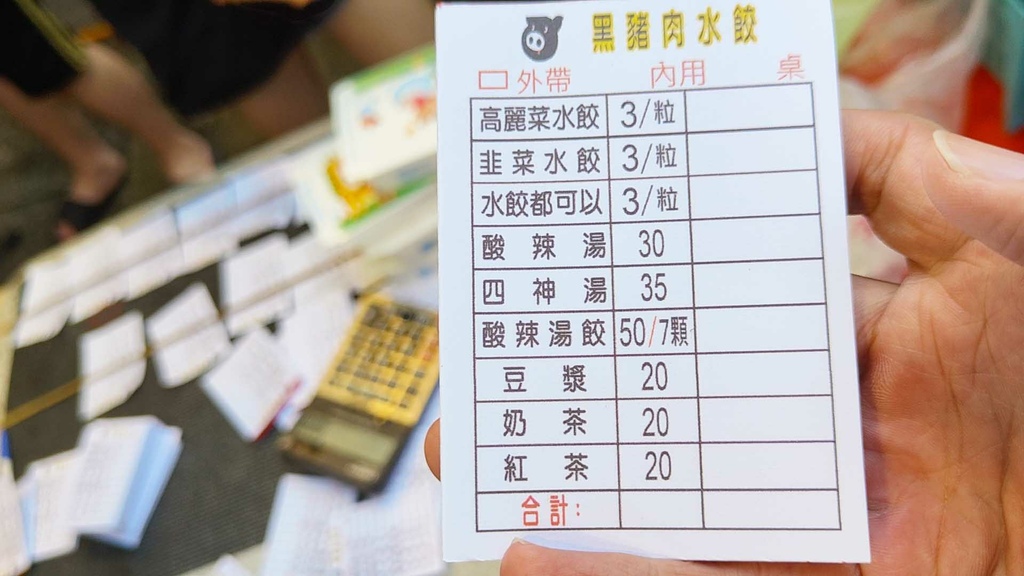 黑豬肉水餃
外帶 內用 桌
高麗菜水餃 3/粒
韭菜水餃 3/粒
水餃都可以 3/粒
酸辣湯 30
四神湯 35
酸辣湯餃 50/7顆
豆漿 20
奶茶 20
紅茶 20
合計: